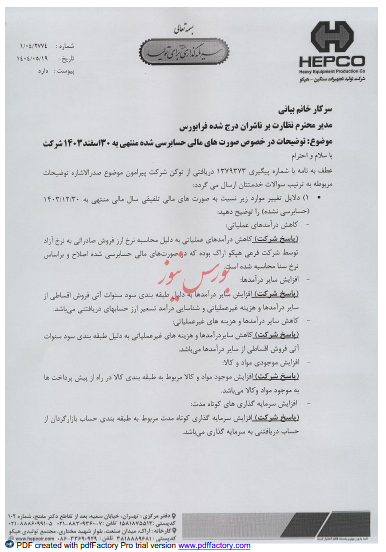 بسمه تعالی
سرمایه‌گذاری برای تولید
شماره : ۱/۰۴/۲۷۷۴
تاریخ : ۱۴۰۴/۰۵/۱۹
پیوست : دارد
HEPCO
Heavy Equipment Production Co
شرکت تولید تجهیزات سنگین - هپکو
سرکار خانم بیاتی
مدیر محترم نظارت بر ناشران درج شده فرابورس
موضوع: توضیحات در خصوص صورت های مالی حسابرسی شده منتهی به ۳۰اسفند۱۴۰۳ شرکت
با سلام و احترام
عطف به نامه با شماره پیگیری ۱۳۷۹۳۷۳ دریافتی از توکن شرکت پیرامون موضوع صدرالاشاره توضیحات
مربوطه به ترتیب سوالات خدمتتان ارسال می گردد:
۱) دلایل تغییر موارد زیر نسبت به صورت های مالی تلفیقی سال مالی منتهی به ۱۴۰۳/۱۲/۳۰
(حسابرسی نشده) را توضیح دهید:
- کاهش درآمدهای عملیاتی:
(پاسخ شرکت) کاهش درآمدهای عملیاتی به دلیل محاسبه نرخ ارز فروش صادراتی به نرخ آزاد
توسط شرکت فرعی هپکو اراک بوده که در صورت‌های مالی حسابرسی شده اصلاح و براساس
نرخ سنا محاسبه شده است.
- افزایش سایر درآمدها:
(پاسخ شرکت) افزایش سایر درآمدها به دلیل طبقه بندی سود سنوات آتی فروش اقساطی از
سایر درآمدها و هزینه غیرعملیاتی و شناسایی درآمد تسعیر ارز حسابهای دریافتنی می‌باشد.
- کاهش سایر درآمدها و هزینه های غیرعملیاتی:
(پاسخ شرکت) کاهش سایردرآمدها و هزینه های غیرعملیاتی به دلیل طبقه بندی سود سنوات
آتی فروش اقساطی از سایر درآمدها می‌باشد.
- افزایش موجودی مواد و کالا:
(پاسخ شرکت) افزایش موجود مواد و کالا مربوط به طبقه بندی کالا در راه از پیش پرداخت ها
به موجود مواد وکالا می‌باشد.
- افزایش سرمایه گذاری های کوتاه مدت:
(پاسخ شرکت) افزایش سرمایه گذاری کوتاه مدت مربوط به طبقه بندی حساب بازارگردان از
حساب دریافتنی به سرمایه گذاری می‌باشد.
بورس نیوز
HEPCO
PDF created with pdfFactory Pro trial version www.pdffactory.com